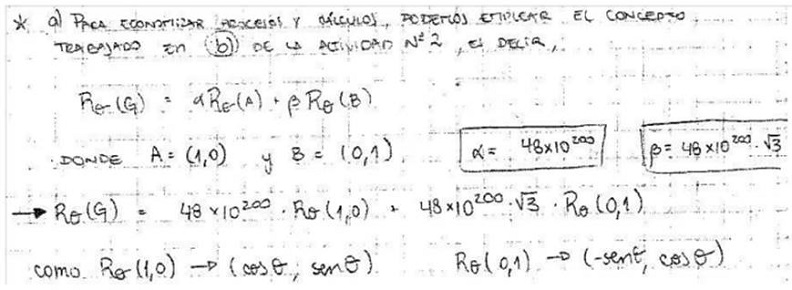 * a) PARA ECONOMIZAR PROCESOS Y CÁLCULOS, PODEMOS EMPLEAR EL CONCEPTO
TRABAJADO EN (b) DE LA ACTIVIDAD Nº 2, ES DECIR,
Rθ(G) = αRθ(A) + βRθ(B)
DONDE A = (1,0) y B = (0,1) α = 48×10²⁰⁰ β = 48×10²⁰⁰·√3
→ Rθ(G) = 48×10²⁰⁰·Rθ(1,0) + 48×10²⁰⁰·√3·Rθ(0,1)
como Rθ(1,0) → (cosθ; senθ) Rθ(0,1) → (-senθ, cosθ)